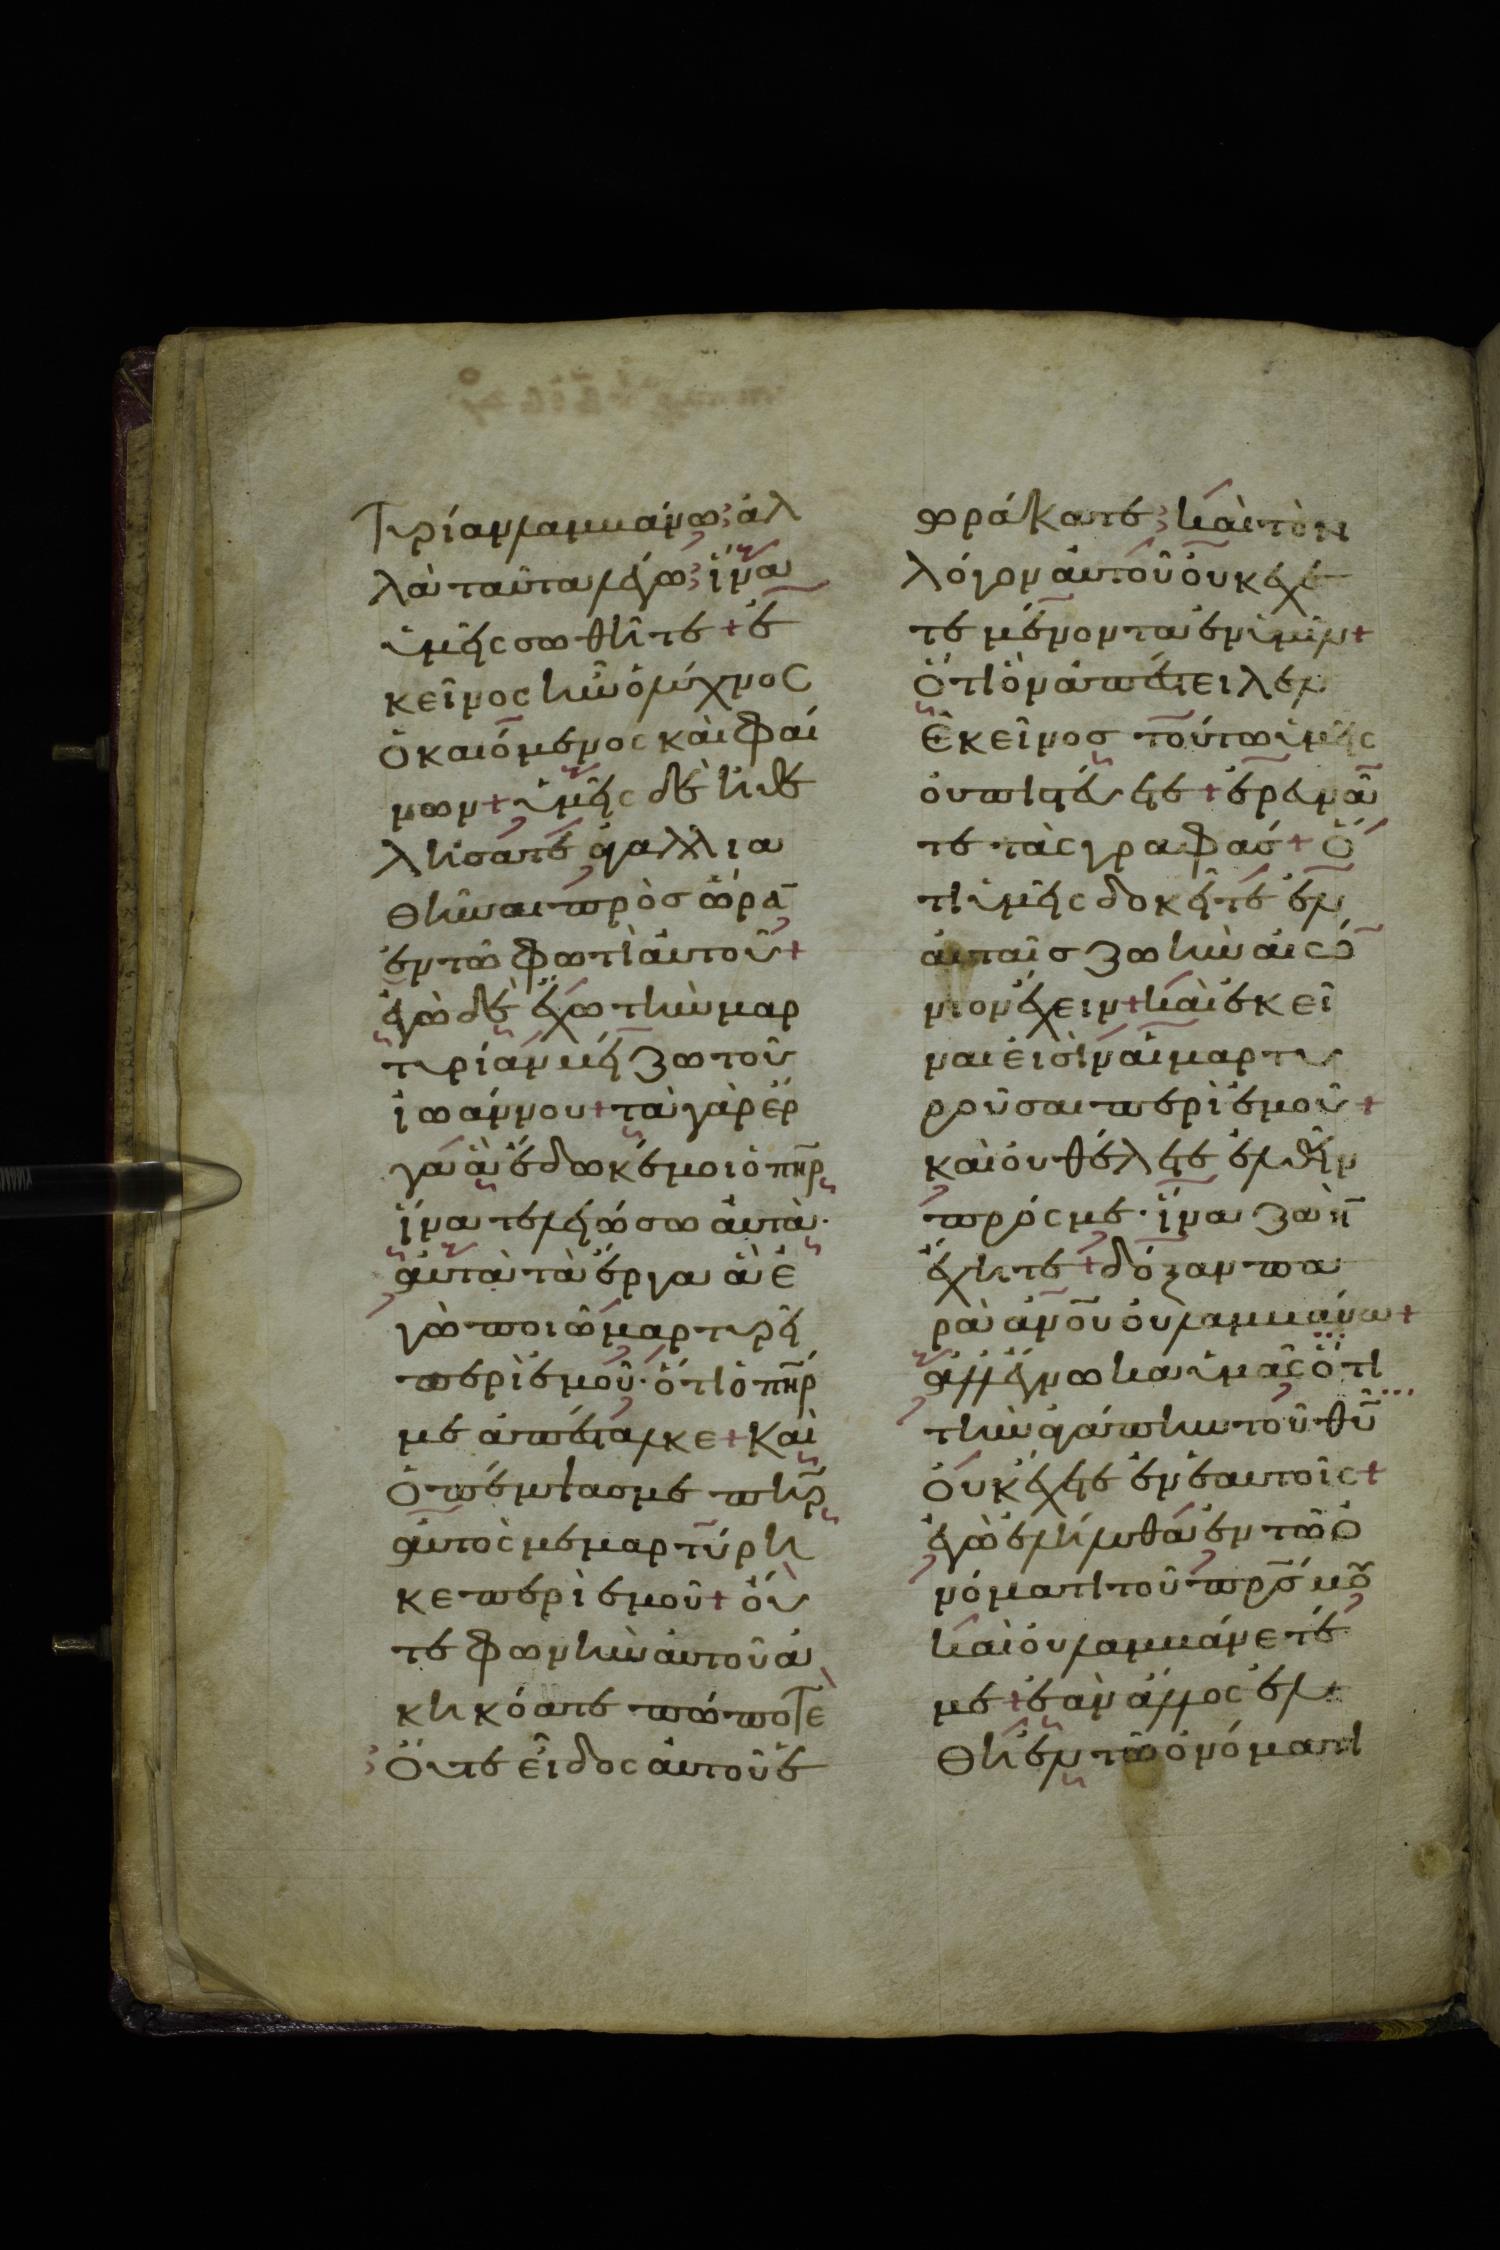 τυρίαν λαμμάνω· ἀλ
λὰ ταῦτα λέγω· ἵ̈να
ὑμεῖς σωθῆτε + ἐ
κεῖνος ἦν ὁ λύχνος
ὁ καιόμενος καὶ φαί
νων + ὑμεῖς δὲ ἠθε
λήσατε ἀγαλλια
θῆναι πρὸς ὥραν
ἐν τῶ φωτὶ ἀυτοῦ +
ἐγὼ δὲ ἔχω τὴν μαρ
τυρίαν μείζω τοῦ
ἰωάννου + τὰ γὰρ ἔρ
γα ἃ ἔδωκέ μοι ὁ πηρ
ἵνα τελειώσω ἀυτὰ·
ἀυτὰ τὰ ἔργα ἃ ἐ
γὼ ποιῶ μαρτυρεῖ
περὶ ἐμοῦ· ὅτι ὁ πηρ
με ἀπέσταλκε + Καὶ
ὁ πέμψας με πηρ
ἀυτὸς μεμαρτύρη
κε περὶ ἐμοῦ + οὔ
τε φωνὴν ἀυτοῦ ἀ
κηκόατε πώποτε
Οὔτε εἶδος ἀυτοῦ ἑ
ωράκατε· καὶ τὸν
λόγον ἀυτοῦ ὀυκ ἔχε
τε μένοντα ἐν ὑμῖν +
Ὅτι ὃν ἀπέστειλεν
Ἐκεῖνος τούτω ὑμεῖς
ὀυ πιστέυετε + ἐρευνᾶ
τε τὰς γραφάς + ὅ
τι ὑμεῖς δοκεῖτε ἐν
ἀυταῖς ζωὴν αἰώ
νιον ἔχειν + καὶ ἐκεῖ
ναι εἰσὶν αἱ μαρτυ
ροῦσαι περὶ ἐμοῦ +
καὶ ὀυ θέλετε ἐλθεῖν
πρός με· ἵνα ζωὴν
ἔχητε + δόξαν πα
ρὰ ἀνου ὀυ λαμμάνω +
ἀλλ' ἔγνωκα ὑμᾶς ὅτι
τὴν ἀγάπην τοῦ θυ
ὀυκ ἔχετε ἐν ἑαυτοῖς +
ἐγὼ ἐλήλυθα ἐν τῶ ὀ
νόματι τοῦ πρς μου
καὶ ὀυ λαμμάνετέ
με + ἐὰν ἄλλος ἔλ
θη ἐν τῶ ὀνόματι